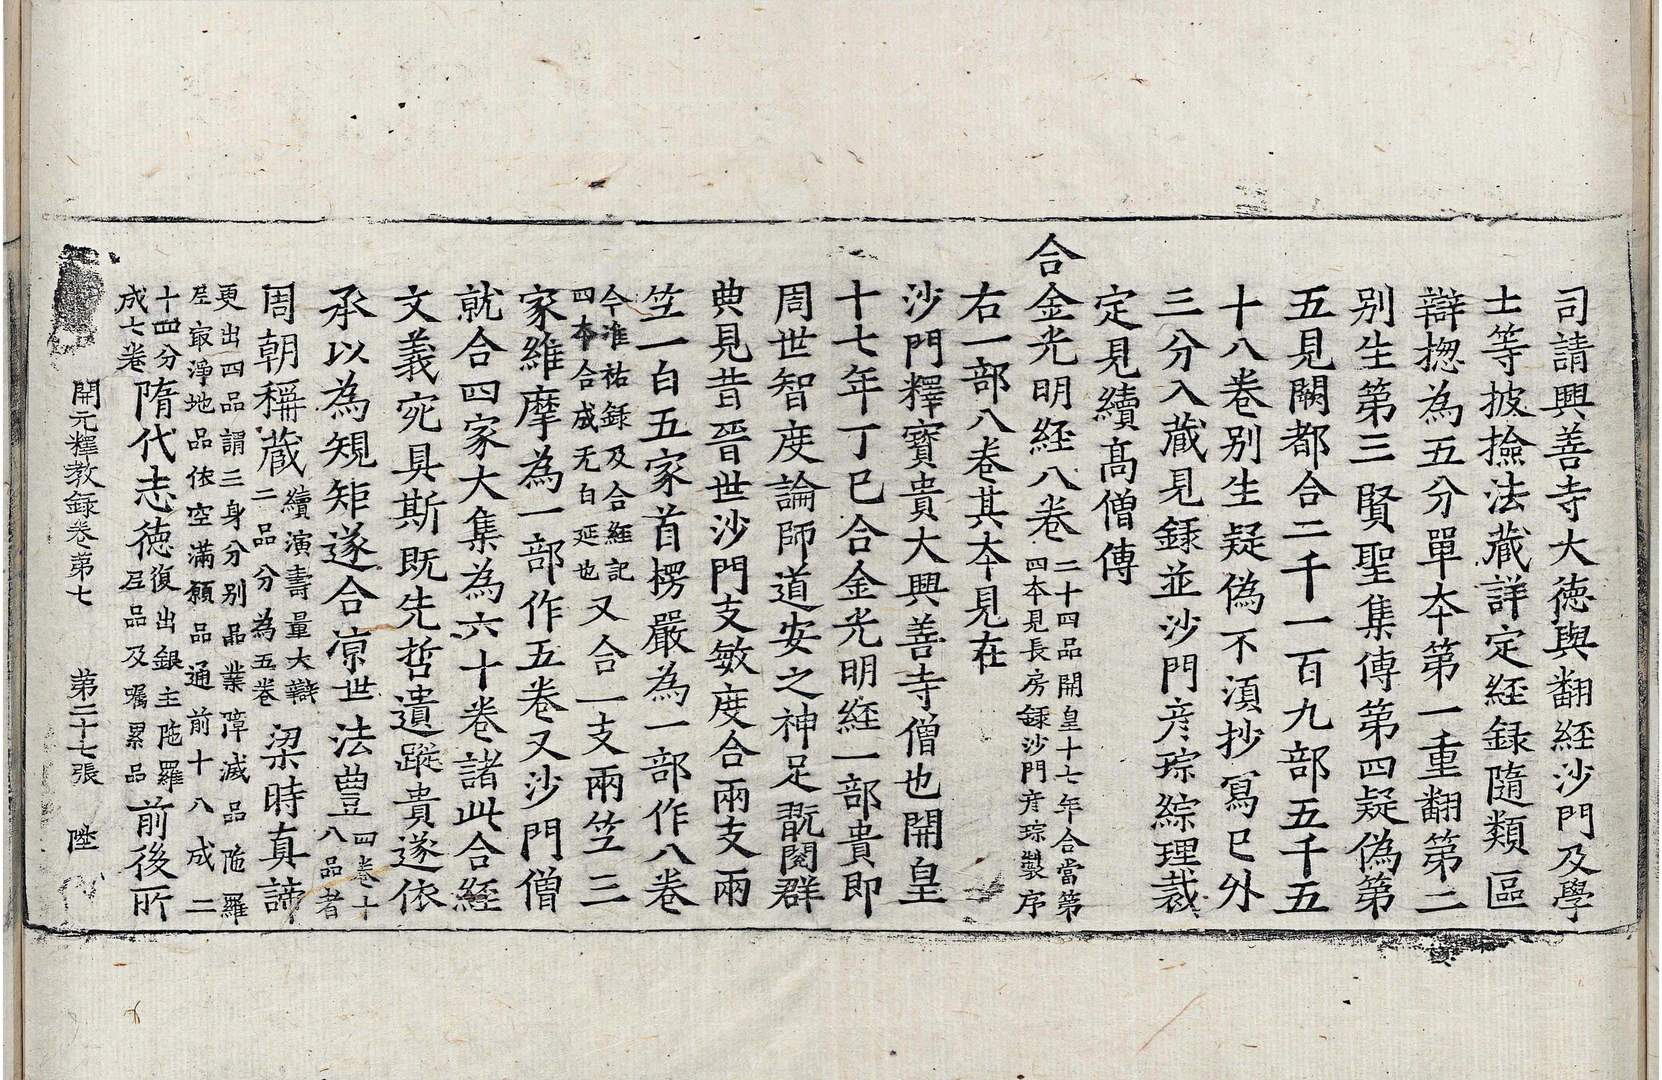 司請興善寺大德與翻経沙門及學
士等披撿法藏詳定経録隨類區
辯揔為五分單夲第一重翻第二
别生第三賢聖集傳第四疑偽第
五見闕都合二千一百九部五千五
十八卷别生疑偽不湏抄寫已外
三分入藏見録並沙門彦琮綜理裁
定見續髙僧傳
合金光明経八卷二十四品開皇十七年合當第
四本見長房録沙門彦琮製序
右一部八卷其夲見在
沙門釋寶貴大興善寺僧也開皇
十七年丁巳合金光明経一部貴即
周世智度論師道安之神足翫閱群
典見昔晉世沙門支敏度合兩支兩
竺一白五家首楞嚴為一部作八卷
今准祐録及合経記
四本合成无白延也又合一支兩竺三
家維摩為一部作五卷又沙門僧
就合四家大集為六十卷諸此合経
文義宛具斯既先哲遺蹤貴遂依
承以為規矩遂合凉世法豊四卷十
八品者
周朝稱藏續演壽量大辯
二品分為五卷梁時真諦
更出四品謂三身分别品業障滅品陁羅
尼㝡淨地品依空滿願品通前十八成二
十四分
成七卷隋代志德復出銀主陁羅
尼品及嘱累品前後所
開元釋教録卷第七　第二十七張　陞